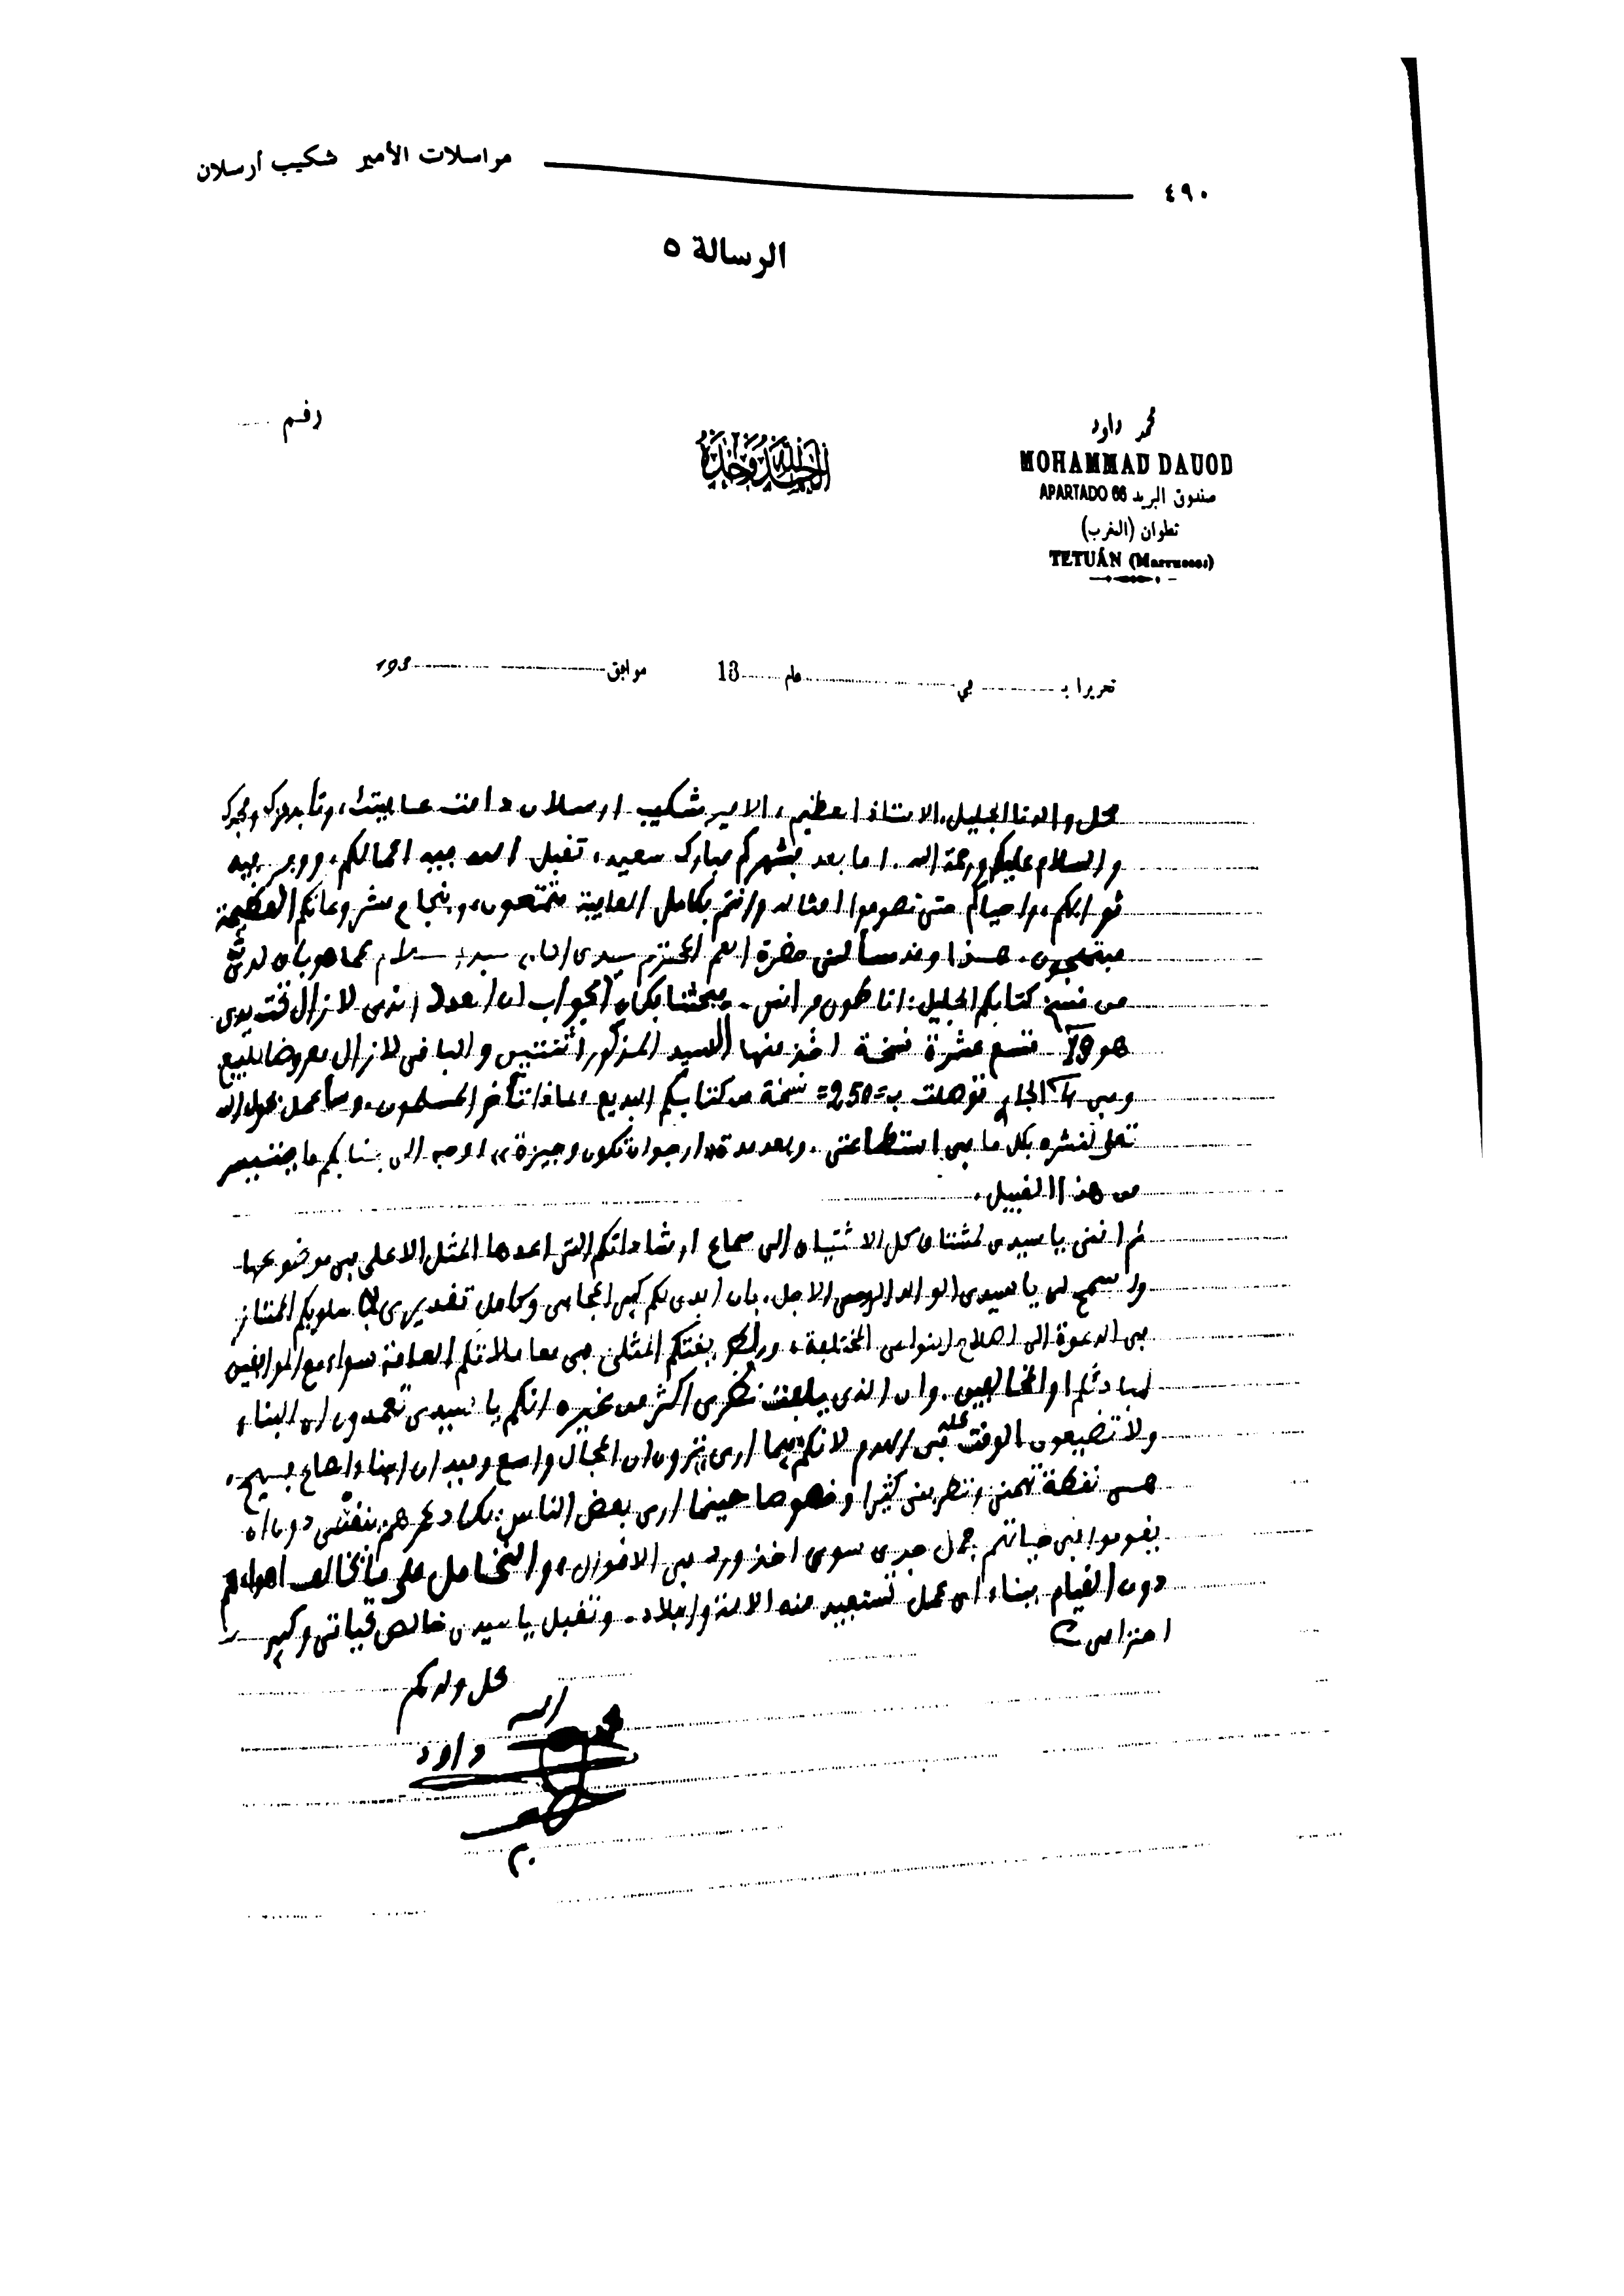 ٤٩٠ مراسلات الأمير شكيب أرسلان
الرسالة ٥
محمد داود
MOHAMMAD DAUOD
صندوق البريد APARTADO 66
تطوان (المغرب)
TETUÁN (Marruecos)
الحمد لله وحده
رقم
تحريرا بـ في عام 13 موافق 193
محل والدنا الجليل، الاستاذ العظيم، الامير شكيب ارسلان دامت عافيته، وتأبد عزكم ومجدكم
والسلام عليكم ورحمة الله. اما بعد فشهركم مبارك سعيد، تقبل الله فيه اعمالكم، ووفر فيه
ثوابكم، واحياكم حتى تصوموا امثاله وانتم بكامل العافية متمتعون، وبنجاح مشروعاتكم العظيمة
مبتهجون. هذا وقد سألني حضرة العم المحترم سيدي الحاج عبد السلام عما هو باق لدي
من نسخ كتابكم الجليل: اناطول فرانس. فبحثنا فكان الجواب ان العدد الذي لا زال تحت يدي
هو 19 تسع عشرة نسخة اخذ منها السيد المذكور اثنتين والباقي لا زال معروضا للبيع
وفي الجاري توصلت بـ =250= نسخة من كتابكم البديع لماذا تأخر المسلمون، وسأعمل بحول الله
تعلى لنشره بكل ما في استطاعتي. وبعد مدة «ارجو ان تكون وجيزة» اوجه الى جنابكم ما يتيسر
من هذا القبيل.
ثم انني يا سيدي لمشتاق كل الاشتياق الى سماع ارشاداتكم التي اعدها المثل الاعلى في موضوعها
ولتسمح لي يا سيدي الوالد الروحي الاجل، بان ابدي لكم كبير اعجابي وكامل تقديري لاسلوبكم الممتاز
في الدعوة الى اصلاح النواحي المختلفة، ولطريقتكم المثلى في معاملاتكم العامة سواء مع الموافقين
لمبادئكم او المخالفين. وان الذي يلفت نظري اكثر من غيره انكم يا سيدي تعمدون الى البناء
ولا تضيعون الوقت كله في الهدم لانكم فيما ارى ترون ان المجال واسع وميدان البناء والاصلاح فسيح،
هي نقطة تهمني وتطربني كثيرا وخصوصا حينما ارى بعض الناس يكاد عمرهم ينقضي دون ان
يقوموا في حياتهم بعمل جدي سوى اخذ ورد في الاقوال، والتحامل على ما يخالف اهواءهم
دون القيام ببناء اي عمل تستفيد منه الامة والبلاد. وتقبل يا سيدي خالص تحياتي وكبير
احترامي
محل ولدكم
محمد داود